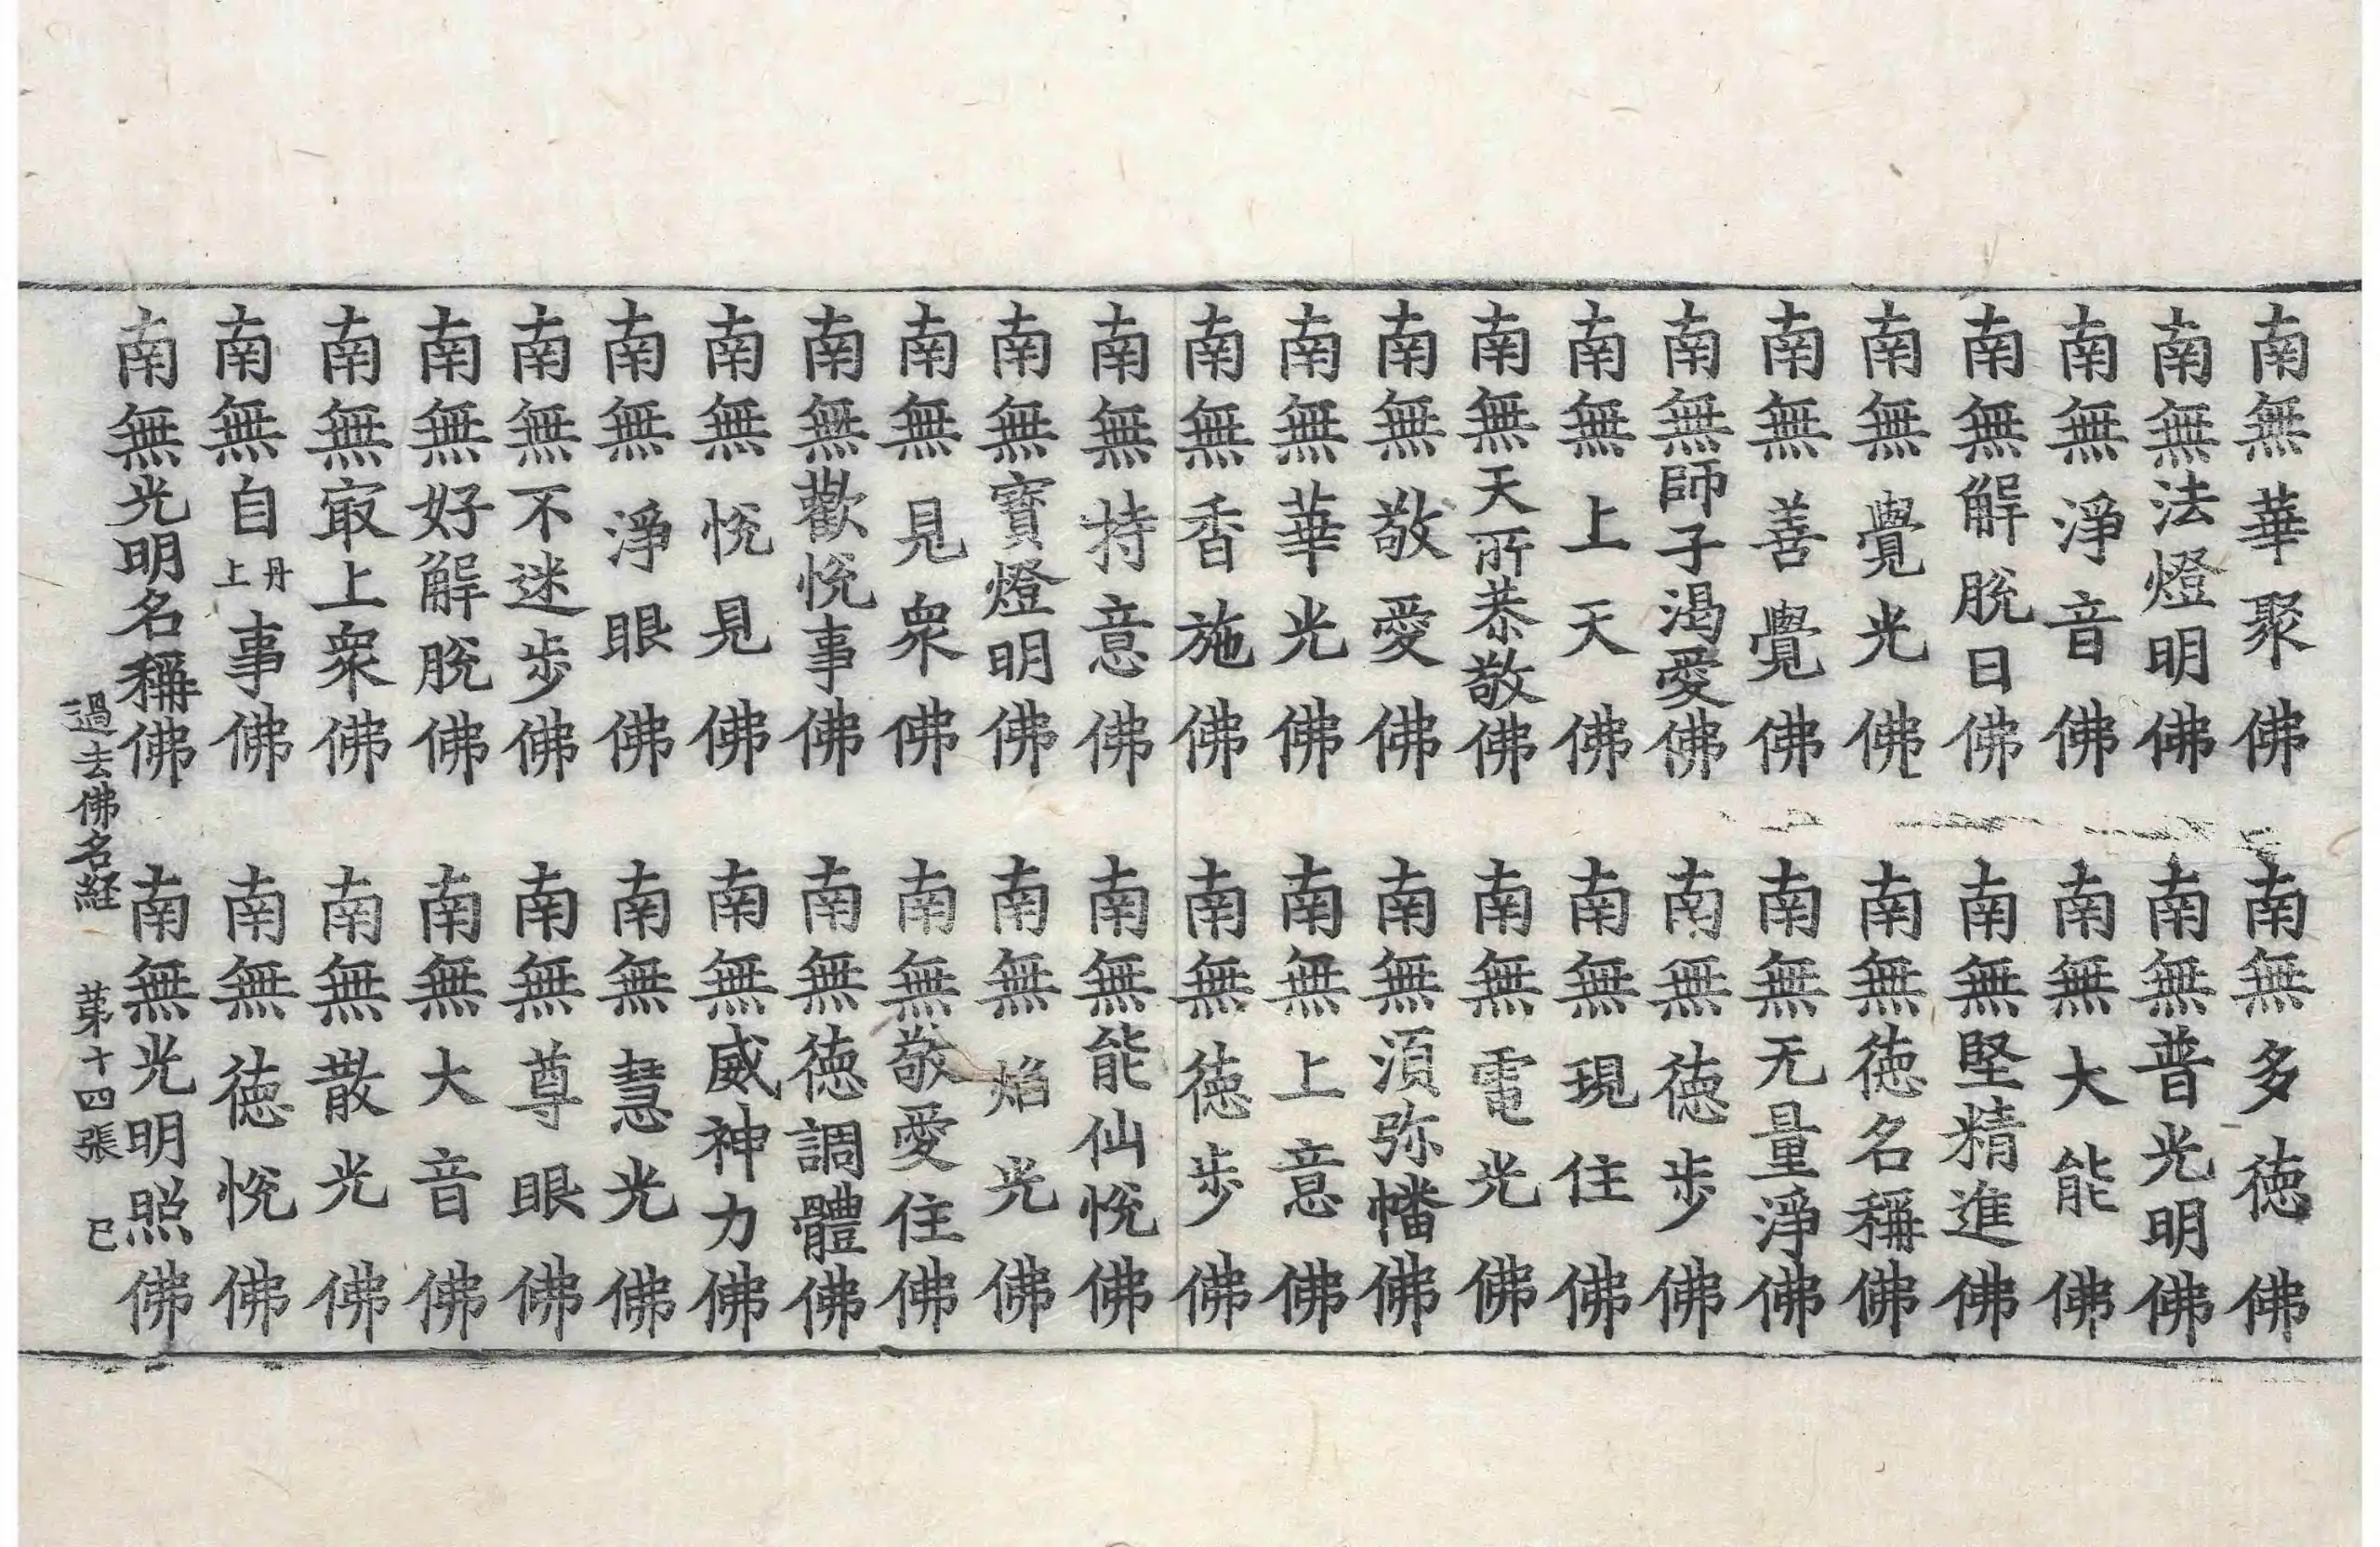 南無華聚佛　南無多德佛
南無法燈明佛　南無普光明佛
南無淨音佛　南無大能佛
南無解脫日佛　南無堅精進佛
南無覺光佛　南無德名稱佛
南無善覺佛　南無无量淨佛
南無師子渴愛佛　南無德步佛
南無上天佛　南無現住佛
南無天所恭敬佛　南無電光佛
南無敬愛佛　南無湏弥幡佛
南無華光佛　南無上意佛
南無香施佛　南無德步佛
南無持意佛　南無能仙悅佛
南無寳燈明佛　南無焰光佛
南無見衆佛　南無敬愛住佛
南無歡悅事佛　南無德調體佛
南無悅見佛　南無威神力佛
南無淨眼佛　南無慧光佛
南無不迷步佛　南無尊眼佛
南無好解脫佛　南無大音佛
南無㝡上衆佛　南無散光佛
南無自丹上事佛　南無德悅佛
南無光明名稱佛　南無光明照佛
過去佛名経　苐十四張　已